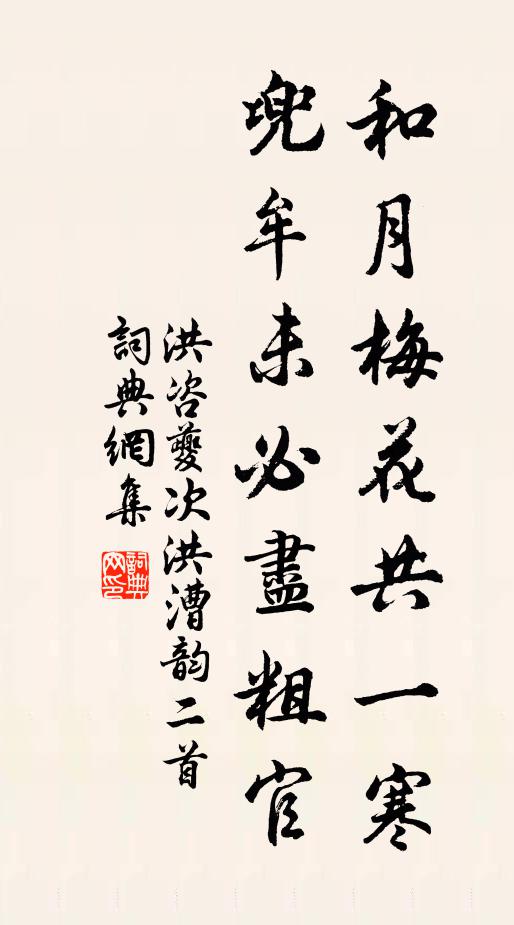 和月梅花共一寒
兜牟未必盡粗官
洪咨夔次洪漕韵二首
詞典網集
詞典
网印